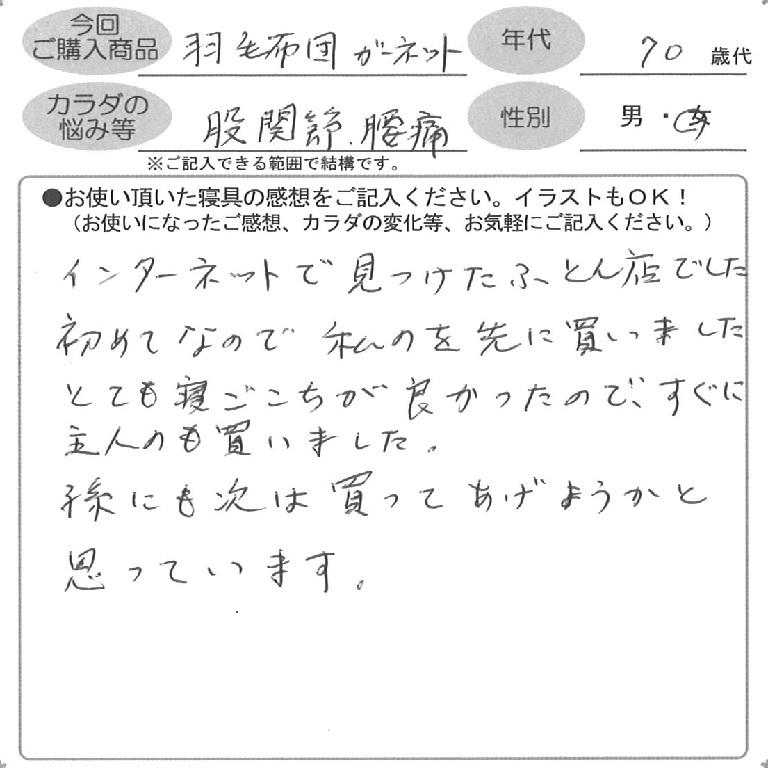 今回
ご購入商品
羽毛布団 ガーネット
年代
70 歳代
カラダの
悩み等
股関節、腰痛
性別
男・女
※ご記入できる範囲で結構です。
●お使い頂いた寝具の感想をご記入ください。イラストもOK!
(お使いになったご感想、カラダの変化等、お気軽にご記入ください。)
インターネットで見つけたふとん店でした
初めてなので私のを先に買いました
とても寝ごこちが良かったので、すぐに
主人のも買いました。
孫にも次は買ってあげようかと
思っています。